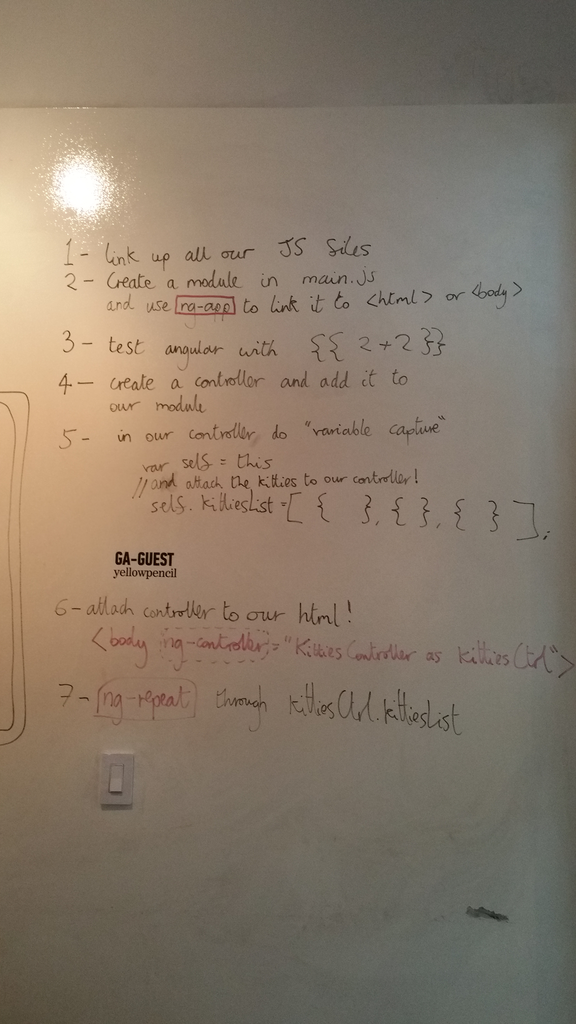 1 - link up all our JS files
2 - Create a module in main.js
and use ng-app to link it to <html> or <body>
3 - test angular with {{ 2 + 2 }}
4 - create a controller and add it to
our module
5 - in our controller do "variable capture"
var self = this
// and attach the kitties to our controller!
self.kittiesList = [ { }, { }, { } ];
GA-GUEST
yellowpencil
6 - attach controller to our html!
<body ng-controller = "KittiesController as KittiesCtrl">
7 - ng-repeat through kittiesCtrl.kittiesList